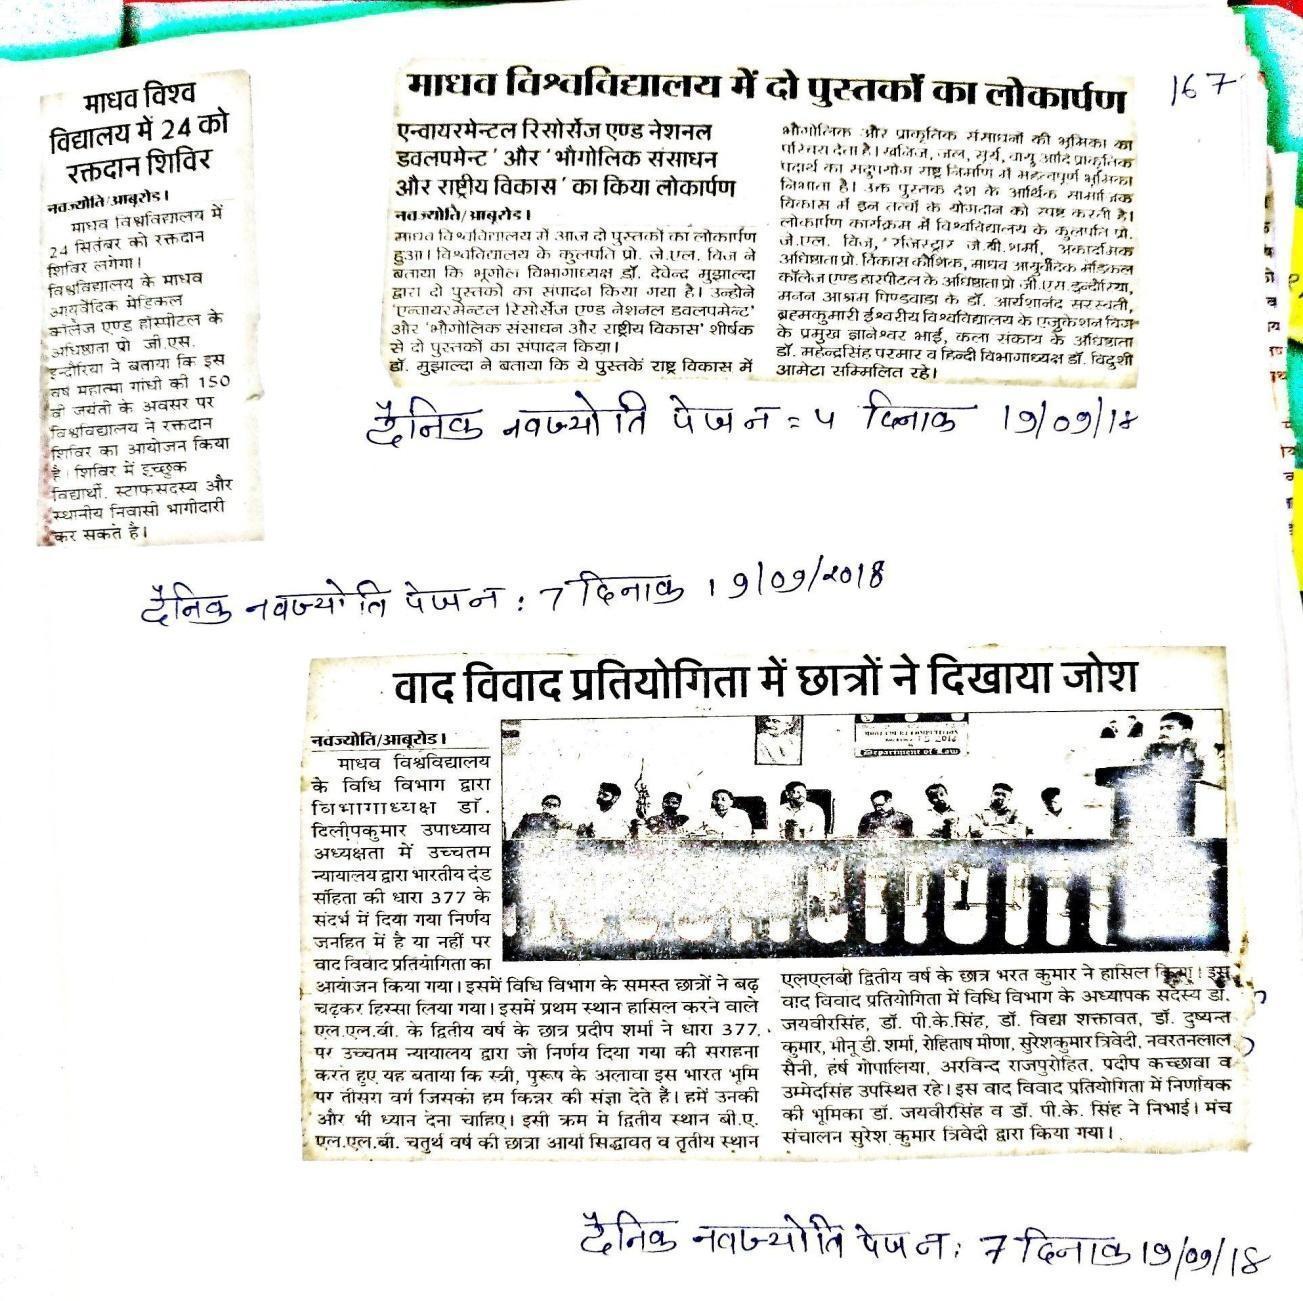 167
माधव विश्व
विद्यालय में 24 को
रक्तदान शिविर
नवज्योति/आबूरोड।
माधव विश्वविद्यालय में
24 सितंबर को रक्तदान
शिविर लगेगा।
विश्वविद्यालय के माधव
आयुर्वेदिक मेडिकल
कॉलेज एण्ड हॉस्पीटल के
अधिष्ठाता प्रो जी.एस.
इन्दौरिया ने बताया कि इस
वर्ष महात्मा गांधी की 150
वी जयंती के अवसर पर
विश्वविद्यालय ने रक्तदान
शिविर का आयोजन किया
है। शिविर में इच्छुक
विद्यार्थी, स्टाफसदस्य और
स्थानीय निवासी भागीदारी
कर सकते है।
माधव विश्वविद्यालय में दो पुस्तकों का लोकार्पण
एन्वायरमेन्टल रिसोर्सेज एण्ड नेशनल
डवलपमेन्ट ' और ' भौगोलिक संसाधन
और राष्ट्रीय विकास ' का किया लोकार्पण
नवज्योति/आबूरोड।
माधव विश्वविद्यालय में आज दो पुस्तकों का लोकार्पण
हुआ। विश्वविद्यालय के कुलपति प्रो. जे.एल. विज ने
बताया कि भूगोल विभागाध्यक्ष डॉ. देवेन्द मुझाल्दा
द्वारा दो पुस्तको का संपादन किया गया है। उन्होने
'एन्वायरमेन्टल रिसोर्सेज एण्ड नेशनल डवलपमेन्ट'
और 'भौगोलिक संसाधन और राष्ट्रीय विकास' शीर्षक
से दो पुस्तकों का संपादन किया।
डॉ. मुझाल्दा ने बताया कि ये पुस्तकें राष्ट्र विकास में
भौगोलिक और प्राकृतिक संसाधनों की भूमिका का
परिचय देता है। खनिज, जल, सूर्य, वायु आदि प्राकृतिक
पदार्थ का सदुपयोग राष्ट्र निर्माण में महत्वपूर्ण भूमिका
निभाता है। उक्त पुस्तक देश के आर्थिक सामाजिक
विकास में इन तत्वों के योगदान को स्पष्ट करती है।
लोकार्पण कार्यक्रम में विश्वविद्यालय के कुलपति प्रो.
जे.एल. विज, रजिस्ट्रार जे.बी.शर्मा, अकादमिक
अधिष्ठाता प्रो. विकास कौशिक, माधव आयुर्वेदिक मेडिकल
कॉलेज एण्ड हास्पीटल के अधिष्ठाता प्रो जी.एस.इन्दौरिया,
मनन आश्रम पिण्डवाडा के डॉ. आर्यशानंद सरस्वती,
ब्रह्मकुमारी ईश्वरीय विश्वविद्यालय के एजुकेशन विंग
के प्रमुख ज्ञानेश्वर भाई, कला संकाय के अधिष्ठाता
डॉ. महेन्द्रसिंह परमार व हिन्दी विभागाध्यक्ष डॉ. विदुशी
आमेटा सम्मिलित रहे।
दैनिक नवज्योति पेज न = ५ दिनाक 19/09/18
दैनिक नवज्योति पेज न : 7 दिनाक 19/09/2018
वाद विवाद प्रतियोगिता में छात्रों ने दिखाया जोश
नवज्योति/आबूरोड।
माधव विश्वविद्यालय
के विधि विभाग द्वारा
विभागाध्यक्ष डॉ.
दिलीपकुमार उपाध्याय
अध्यक्षता में उच्चतम
न्यायालय द्वारा भारतीय दंड
संहिता की धारा 377 के
संदर्भ में दिया गया निर्णय
जनहित में है या नहीं पर
वाद विवाद प्रतियोगिता का
MOOT COURT COMPETITION
2018
Department of Law
आयोजन किया गया। इसमें विधि विभाग के समस्त छात्रों ने बढ़
चढ़कर हिस्सा लिया गया। इसमें प्रथम स्थान हासिल करने वाले
एल.एल.बी. के द्वितीय वर्ष के छात्र प्रदीप शर्मा ने धारा 377
पर उच्चतम न्यायालय द्वारा जो निर्णय दिया गया की सराहना
करते हुए यह बताया कि स्त्री, पुरूष के अलावा इस भारत भूमि
पर तीसरा वर्ग जिसको हम किन्नर की संज्ञा देते है। हमें उनकी
और भी ध्यान देना चाहिए। इसी क्रम मे द्वितीय स्थान बी.ए.
एल.एल.बी. चतुर्थ वर्ष की छात्रा आर्या सिद्धावत व तृतीय स्थान
एलएलबी द्वितीय वर्ष के छात्र भरत कुमार ने हासिल किया। इस
वाद विवाद प्रतियोगिता में विधि विभाग के अध्यापक सदस्य डॉ.
जयवीरसिंह, डॉ. पी.के.सिंह, डॉ. विद्या शक्तावत, डॉ. दुष्यन्त
कुमार, भीनू डी. शर्मा, रोहिताष मीणा, सुरेशकुमार त्रिवेदी, नवरतनलाल
सैनी, हर्ष गोपालिया, अरविन्द राजपुरोहित, प्रदीप कच्छावा व
उम्मेदसिंह उपस्थित रहे। इस वाद विवाद प्रतियोगिता में निर्णायक
की भूमिका डॉ. जयवीरसिंह व डॉ. पी.के. सिंह ने निभाई। मंच
संचालन सुरेश कुमार त्रिवेदी द्वारा किया गया।
दैनिक नवज्योति पेज न : 7 दिनाक 19/09/18